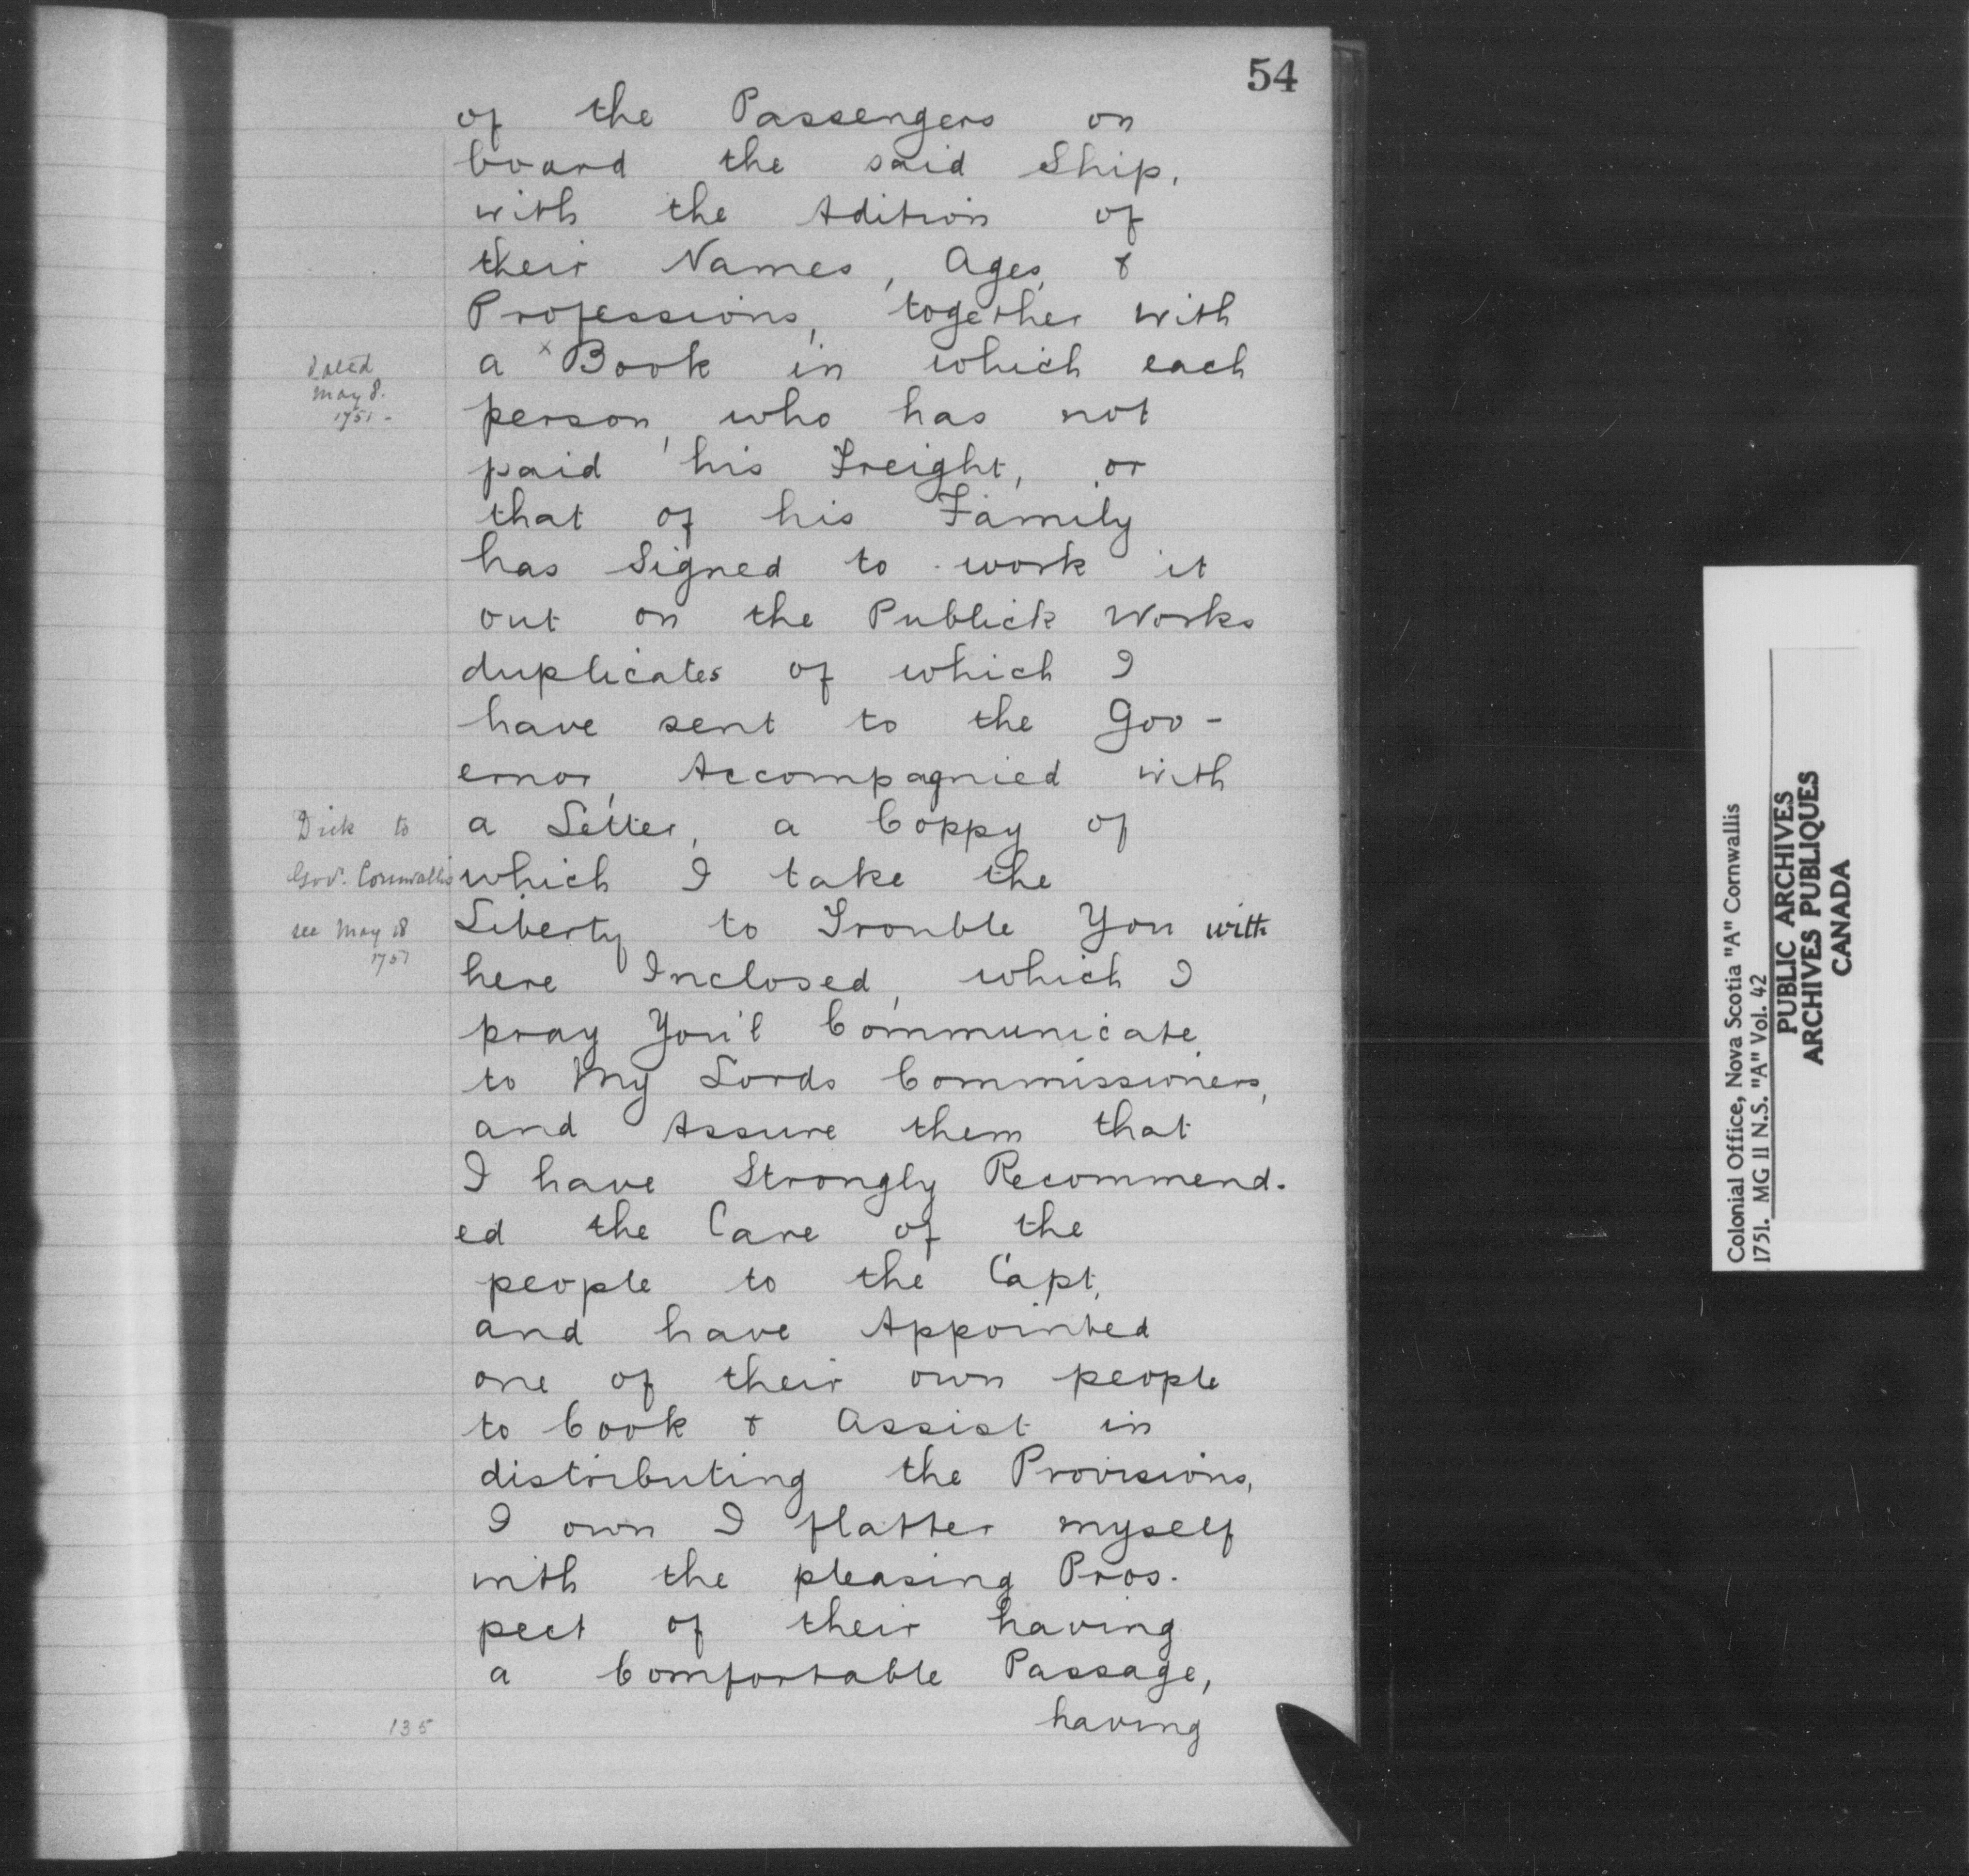 54
of the Passengers on
board the said Ship,
with the Adition of
their Names, Ages, &
Professions, together with
dated
May 8.
1751-
a x Book in which each
person, who has not
paid his Freight, or
that of his Family
has Signed to work it
out on the Publick Works
duplicates of which I
have sent to the Gov-
ernor, Accompagnied with
Dick to
Gov. Cornwallis
see May 18
1751
a Letter, a Coppy of
which I take the
Liberty to Trouble You with
here Inclosed, which I
pray You'l Communicate
to My Lords Commissioners,
and Assure them that
I have Strongly Recommend-
ed the Care of the
people to the Capt,
and have Appointed
one of their own people
to Cook & Assist in
distributing the Provisions,
I own I flatter myself
with the pleasing Pros-
pect of their having
a Comfortable Passage,
having
135
Colonial Office, Nova Scotia "A" Cornwallis
1751. MG 11 N.S. "A" Vol. 42
PUBLIC ARCHIVES
ARCHIVES PUBLIQUES
CANADA